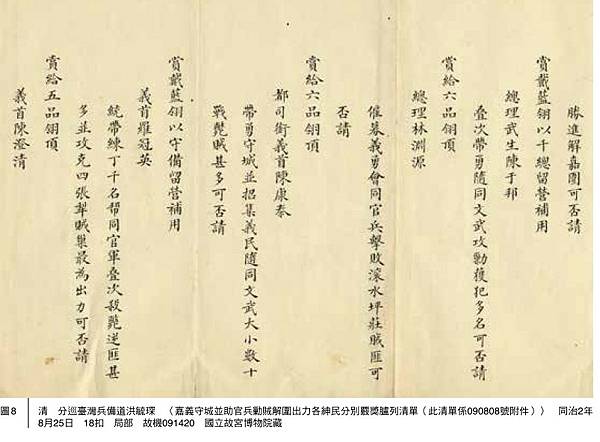 勝進解嘉圍可否請
賞戴藍翎以千總留營補用
總理武生陳于邦
疊次帶勇隨同文武攻勦獲犯多名可否請
賞給六品翎頂
總理林淵源
催募義勇會同官兵擊敗滾水坪莊賊匪可
否請
賞給六品翎頂
都司銜義首陳康泰
帶勇守城並招集義民隨同文武大小數十
戰斃賊甚多可否請
賞戴藍翎以守備留營補用
義首羅冠英
統帶練丁千名幫同官軍疊次殺斃逆匪甚
多並攻克四張犂賊巢最為出力可否請
賞給五品翎頂
義首陳澄清
圖8 清　分巡臺灣兵備道洪毓琛　〈嘉義守城並助官兵勦賊解圍出力各紳民分別覈獎臚列清單（此清單係090808號附件）〉　同治2年
8月25日　18扣　局部　故機091420　國立故宮博物院藏